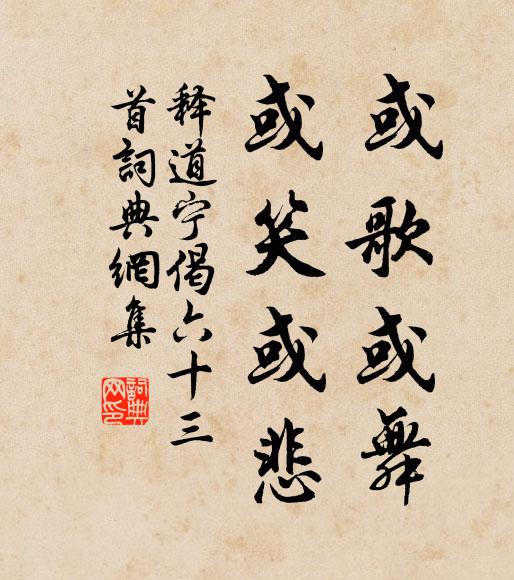 或歌或舞
或笑或悲
释道宁偈六十三
首詞典網集
詞典
网印